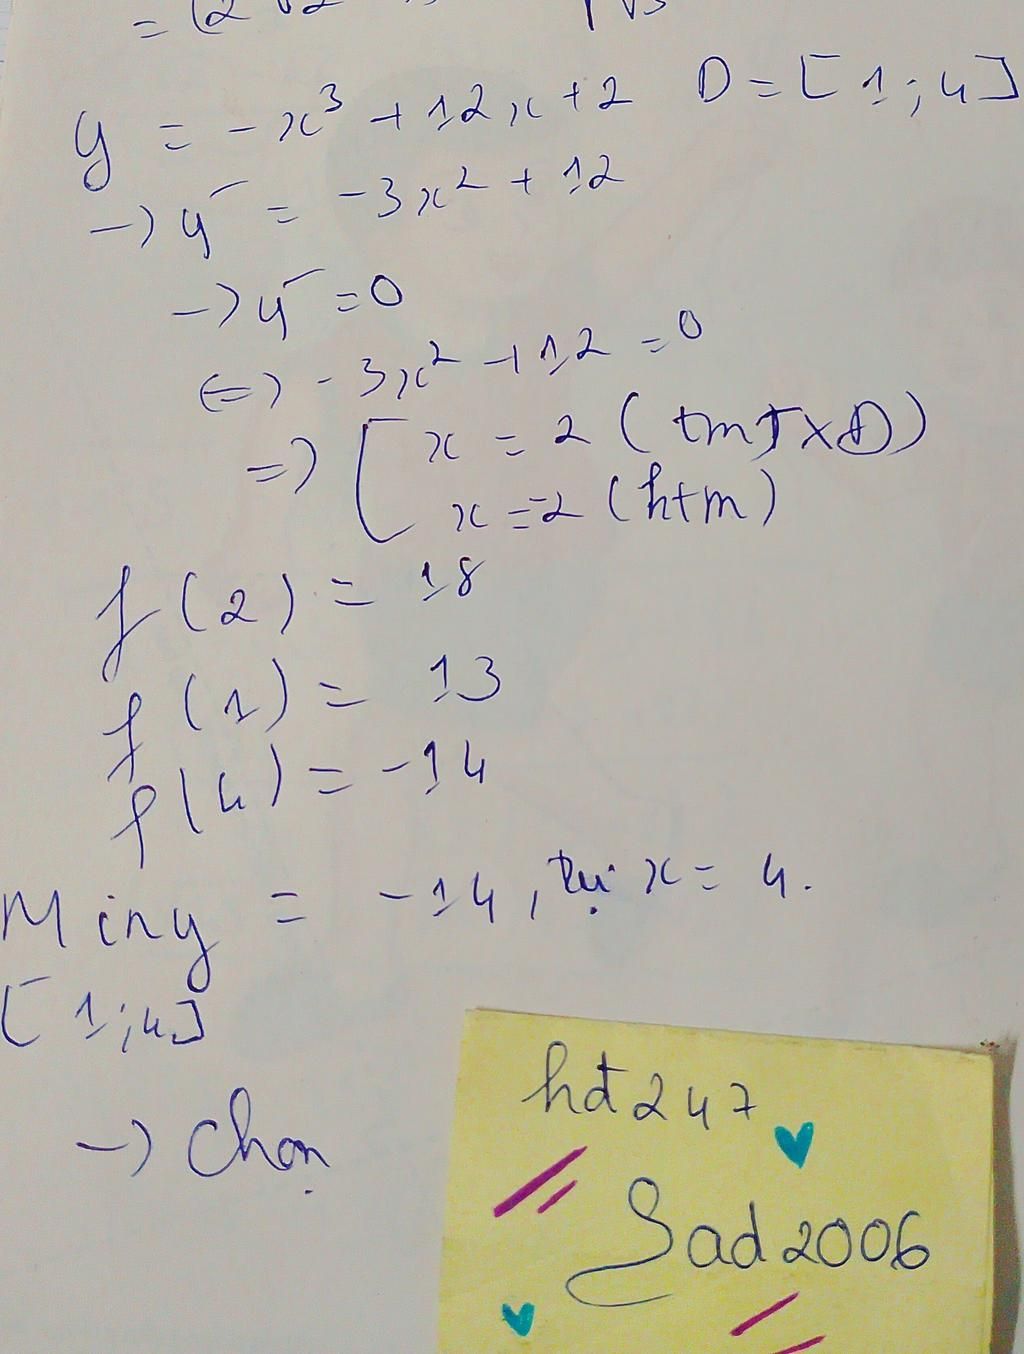 = (2√2
y = -x³ + 12x + 2 D = [1;4]
→ y' = -3x² + 12
→ y' = 0
⇔ -3x² + 12 = 0
⇒ [ x = 2 (tmTXĐ)
x = -2 (htm)
f(2) = 18
f(1) = 13
f(4) = -14
Min y = -14, tại x = 4.
[1;4]
→ Chọn
hđ247
Sad2006